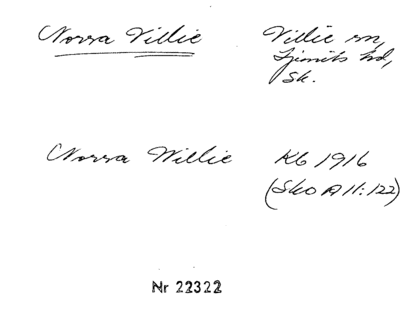 Norra Villie Villie sn,
Ljunits hd,
Sk.
Norra Willie Kb 1916
(Sko A II:122)
Nr 22322